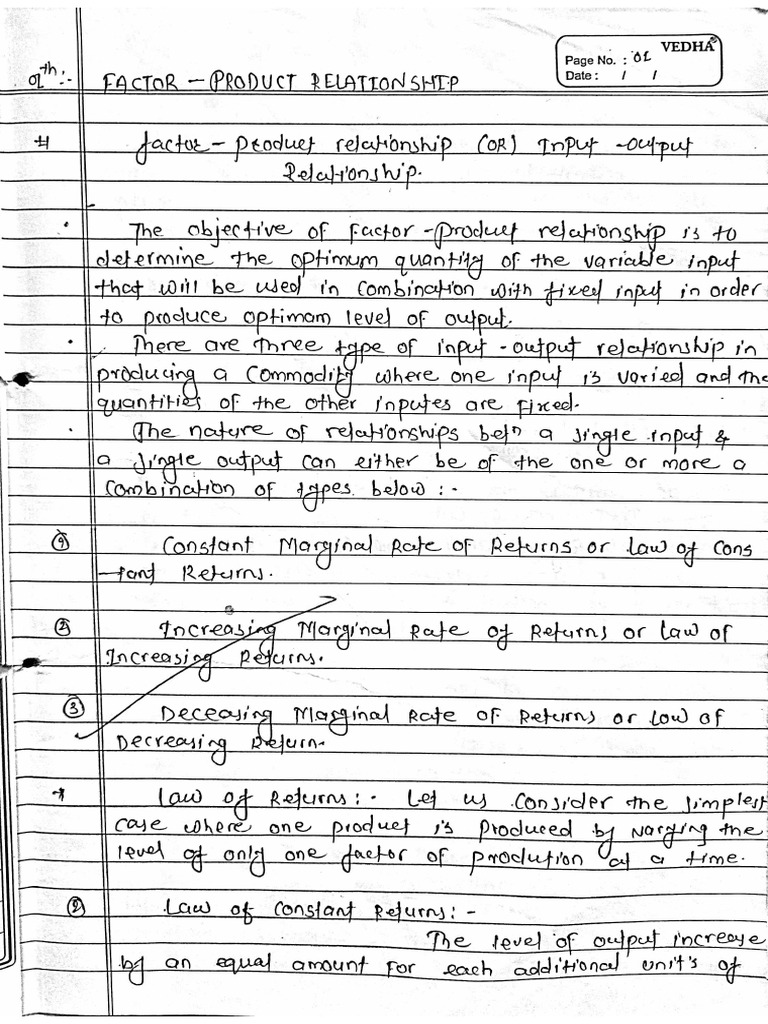 VEDHA
Page No. : 01
Date : / /
01th:- FACTOR - PRODUCT RELATIONSHIP
# factor - product relationship (OR) Input - output
Relationship.
• The objective of Factor - product relationship is to
determine the optimum quantity of the variable input
that will be used in combination with fixed input in order
to produce optimam level of output.
• There are three type of input - output relationship in
producing a commodity where one input is varied and the
quantities of the other inputes are fixed.
• The nature of relationships betn a single input &
a single output can either be of the one or more a
combination of types below :-
① Constant Marginal Rate of Returns or Law of Cons
-tant Returns.
② Increasing Marginal Rate of Returns or Law of
Increasing Returns.
③ Deceasing Marginal Rate of Returns or Low of
Decreasing Return.
* Law of Returns :- Let us consider the simplest
case where one product is produced by varging the
level of only one factor of prodution at a time.
② Law of Constant Returns :-
The level of output increase
by an equal amount for each additional unit's of